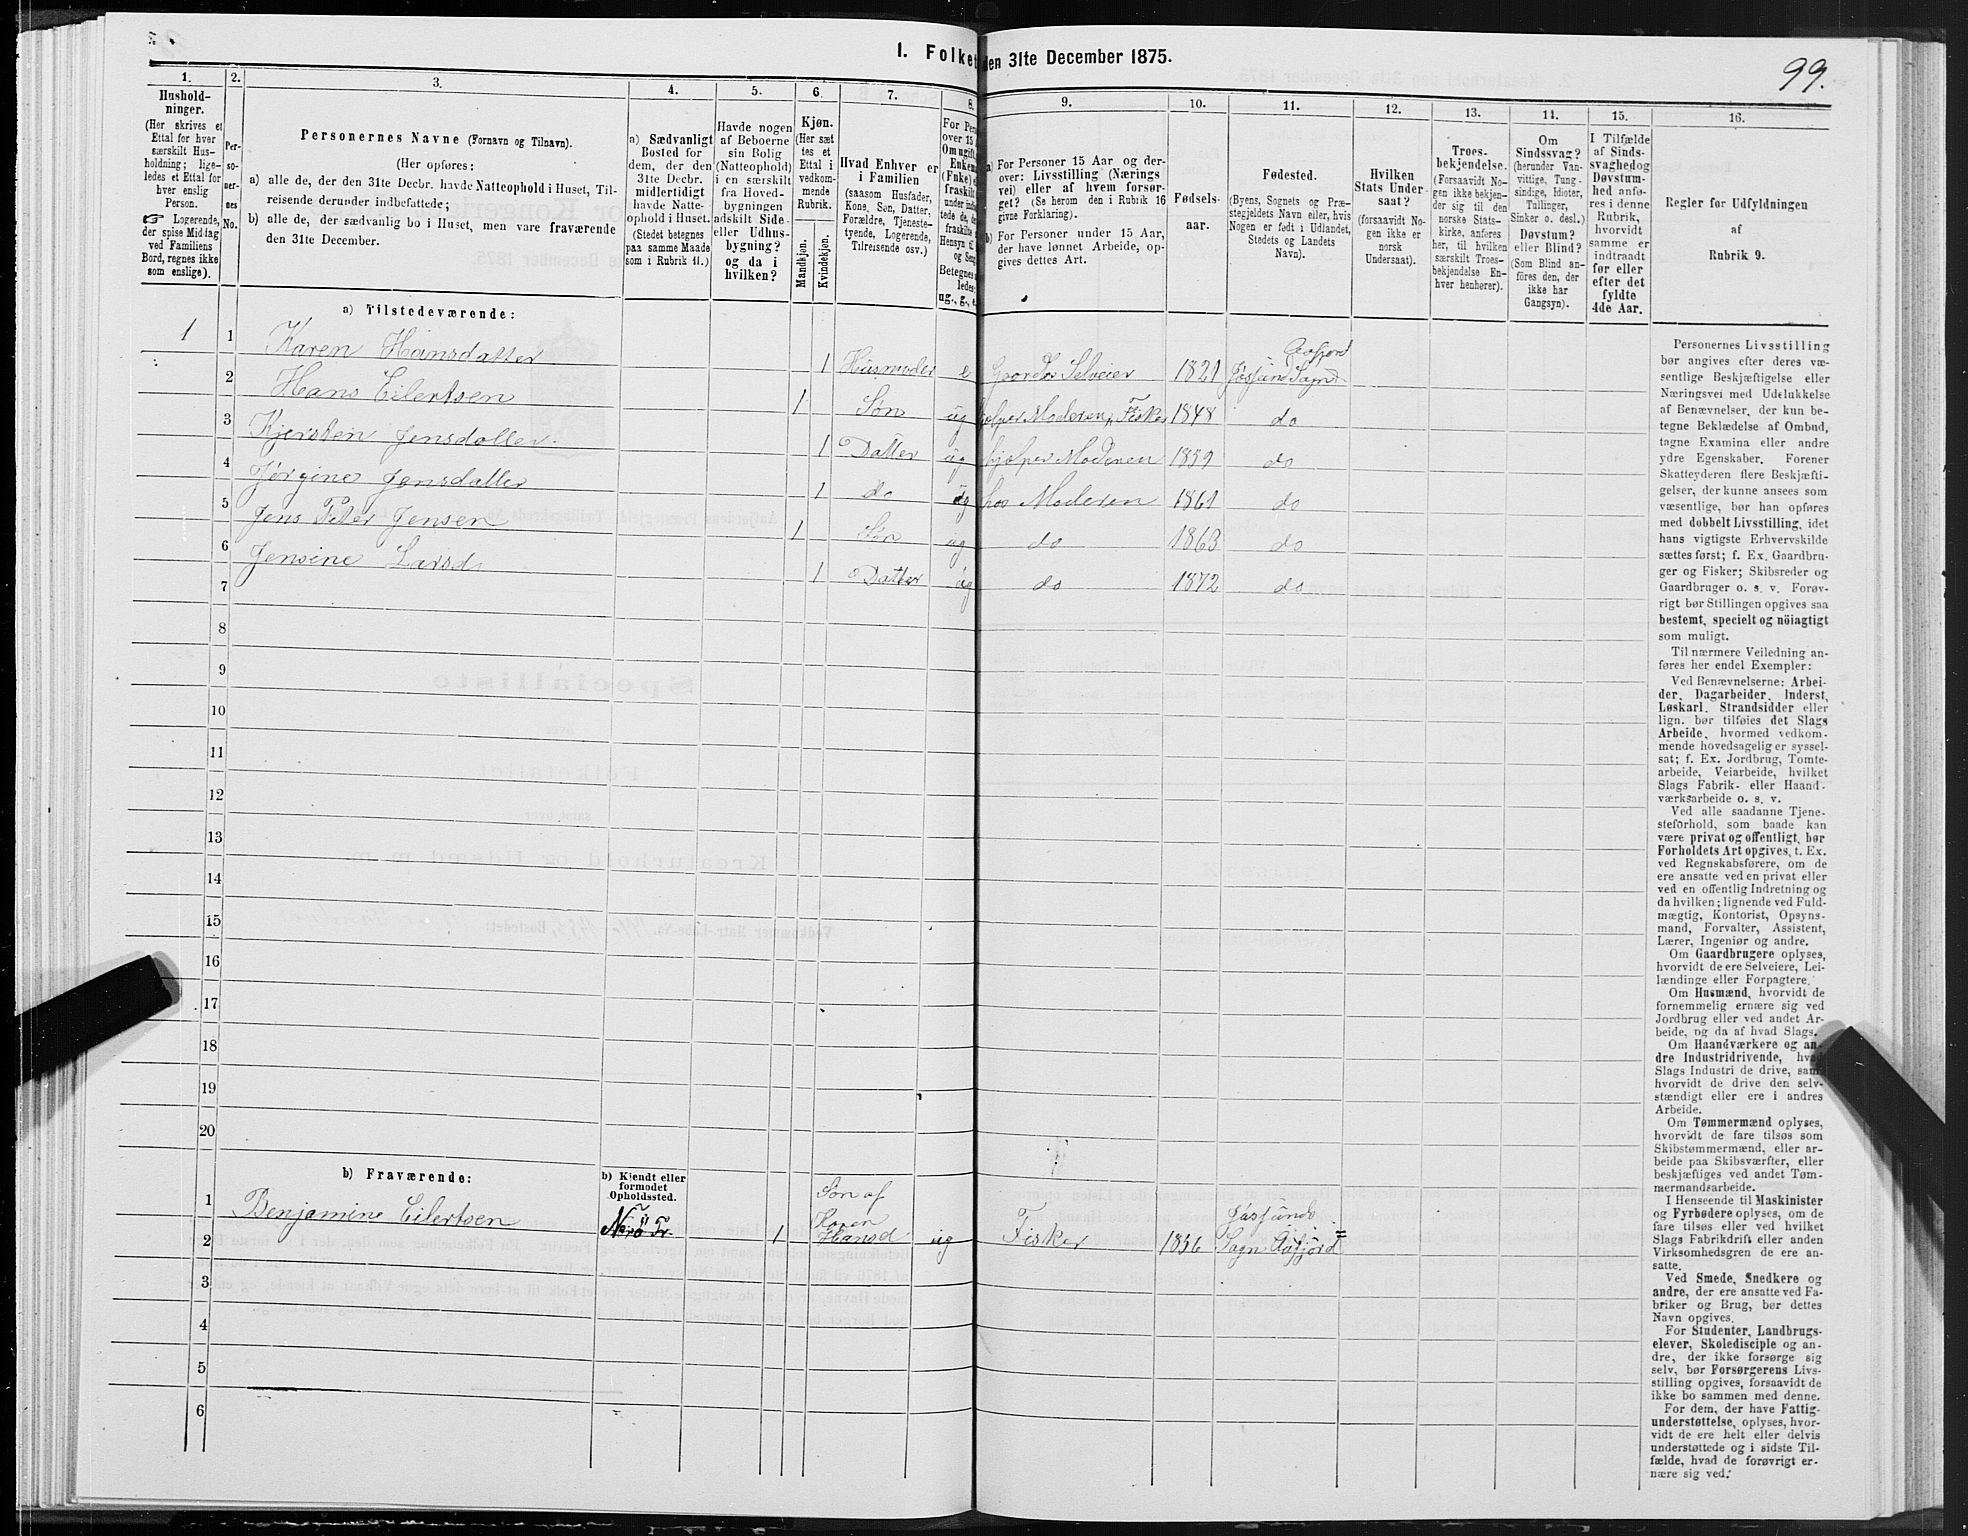 I. Folket
den 31te December 1875.
99.
1.
2.
3.
4.
5.
6.
7.
8.
9.
10.
11.
12.
13.
14.
15.
16.
Hushold-
ninger.
(Her skrives et
Ettal for hver
særskilt Hus-
holdning; lige-
ledes et Ettal for
hver enslig
Person.
☞ Logerende,
der spise Middag
ved Familiens
Bord, regnes ikke
som enslige).
Per-
so-
ner-
nes
No.
Personernes Navne (Fornavn og Tilnavn).
(Her opføres:
a) alle de, der den 31te Decbr. havde Natteophold i Huset, Til-
reisende derunder indbefattede;
b) alle de, der sædvanlig bo i Huset, men vare fraværende
den 31te December.
a) Sædvanligt
Bosted for
dem, der den
31te Decbr.
midlertidigt
havde Natte-
ophold i Huset.
(Stedet betegnes
paa samme Maade
som i Rubrik 11.)
Havde nogen
af Beboerne
sin Bolig
(Natteophold)
i en særskilt
fra Hoved-
bygningen
adskilt Side-
eller Udhus-
bygning?
og da i
hvilken?
Kjøn.
(Her sæt
tes et
Ettal i
vedkom-
mende
Rubrik.
Mandkjøn.
Kvindekjøn.
Hvad Enhver er
i Familien
(saasom Husfader,
Kone, Søn, Datter,
Forældre, Tjeneste-
tyende, Logerende,
Tilreisende osv.)
For Per
over 15
Om ugift,
Enkem
(Enke) e
fraskilt
under indb
tede de, d
fraskilte
Hensyn ti
og Seng
Betegnes
ledes:
ug., g., e.
a) For Personer 15 Aar og der-
over: Livsstilling (Nærings
vei) eller af hvem forsør-
get? (Se herom den i Rubrik 16
givne Forklaring).
b) For Personer under 15 Aar,
der have lønnet Arbeide, op-
gives dettes Art.
Fødsels-
aar.
Fødested.
(Byens, Sognets og Præ-
stegjeldets Navn eller, hvis
Nogen er født i Udlandet,
Stedets og Landets
Navn).
Hvilken
Stats Under-
saat?
(forsaavidt No-
gen ikke er
norsk
Undersaat).
Troes-
bekjendelse.
(Forsaavidt No-
gen ikke bekjen-
der sig til den
norske Stats-
kirke, anføres
her, til hvilken
særskilt Troes-
bekjendelse En-
hver henhører).
Om
Sindssvag?
(herunder Van-
vittige, Tung-
sindige, Idioter,
Tullinger,
Sinker o. desl.)
Døvstum?
eller Blind?
(Som Blind an-
føres den, der
ikke har
Gangsyn).
I Tilfælde
af Sinds-
svaghed og
Døvstum-
hed anfø-
res i denne
Rubrik,
hvorvidt
samme er
indtraadt
før eller
efter det
fyldte
4de Aar.
Regler for Udfyldningen
af
Rubrik 9.
a) Tilstedeværende:
1 1 Karen Hansdatter 1 Husmoder e Gaardbr Selveier 1821 Jøssund Sogn Aafjord
2 Hans Eilertsen 1 Søn ug hjelper Moderen, Fisker 1848 do
3 Kjersten Jensdatter 1 Datter ug hjelper Moderen 1859 do
4 Jørgine Jensdatter 1 do ug hos Moderen 1861 do
5 Jens Peter Jensen 1 Søn ug do 1863 do
6 Jensine Larsd 1 Datter ug do 1872 do
7
8
9
10
11
12
13
14
15
16
17
18
19
20
b) Fraværende:
b) Kjendt eller
formodet
Opholdssted.
1 Benjamine Eilertsen 1 Søn af Karen Hansd ug Fisker 1856 Jøssunds Sogn Aafjord
2
3
4
5
6
Personernes Livsstilling
bør angives efter deres væ-
sentlige Beskjæftigelse eller
Næringsvei med Udelukkelse
af Benævnelser, der kun be-
tegne Beklædelse af Ombud,
tagne Examina eller andre
ydre Egenskaber. Forener
Skatteyderen flere Beskjæfti-
gelser, der kunne ansees som
væsentlige, bør han opføres
med dobbelt Livsstilling, idet
hans vigtigste Erhvervskilde
sættes først; f. Ex. Gaardbru-
ger og Fisker; Skibsreder og
Gaardbruger o. s. v. Forøv-
rigt bør Stillingen opgives saa
bestemt, specielt og nöiagtigt
som muligt.
Til nærmere Veiledning an-
føres her endel Exempler:
Ved Benævnelserne: Arbei-
der, Dagarbeider, Inderst,
Løskarl, Strandsidder eller
lign. bør tilføies det Slags
Arbeide, hvormed vedkom-
mende hovedsagelig er syssel-
sat; f. Ex. Jordbrug, Tomte-
arbeide, Veiarbeide, hvilket
Slags Fabrik- eller Haand-
værksarbeide o. s. v.
Ved alle saadanne Tjene-
steforhold, som baade kan
være privat og offentligt, bør
Forholdets Art opgives, t. Ex.
ved Regnskabsførere, om de
ere ansatte ved en privat eller
ved en offentlig Indretning og
da hvilken; lignende ved Fuld-
mægtig, Kontorist, Opsyns-
mand, Forvalter, Assistent,
Lærer, Ingeniør og andre.
Om Gaardbrugere oplyses,
hvorvidt de ere Selveiere, Lei-
lændinge eller Forpagtere.
Om Husmænd, hvorvidt de
fornemmelig ernære sig ved
Jordbrug eller ved andet Ar-
beide, og da af hvad Slags.
Om Haandværkere og an-
dre Industridrivende, hvad
Slags Industri de drive, samt
hvorvidt de drive den selv-
stændigt eller ere i andres
Arbeide.
Om Tømmermænd oplyses,
hvorvidt de fare tilsøs som
Skibstømmermænd, eller ar-
beide paa Skibsværfter, eller
beskjæftiges ved andet Tøm-
mermandsarbeide.
I Henseende til Maskinister
og Fyrbødere oplyses, om de
fare tilsøs eller ved hvilket
Slags Fabrikdrift eller anden
Virksomhedsgren de ere an-
satte.
Ved Smede, Snedkere og
andre, der ere ansatte ved Fa-
briker og Brug, bør dettes
Navn opgives.
For Studenter, Landbrugs-
elever, Skoledisciple og an-
dre, der ikke forsørge sig
selv, bør Forsørgerens Livs-
stilling opgives, forsaavidt de
ikke bo sammen med denne.
For dem, der have Fattig-
understøttelse, oplyses, hvor-
vidt de ere helt eller delvis
understøttede og i sidste Til-
fælde, hvad de forøvrigt er-
nære sig ved.